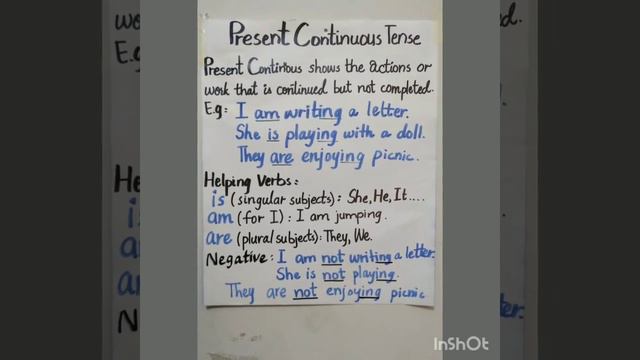 Present Continuous Tense
Present Contirious shows the actions or
work that is continued but not completed.
E.g: I am writing a letter.
She is playing with a doll.
They are enjoying picnic.
Helping Verbs:
is (singular subjects): She, He, It....
am (for I): I am jumping.
are (plural subjects): They, We.
Negative: I am not writing a letter.
She is not playing.
They are not enjoying picnic
InShOt